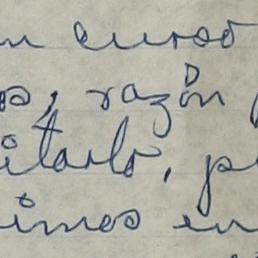 n curso
os, razón
itarlo, p
imos en